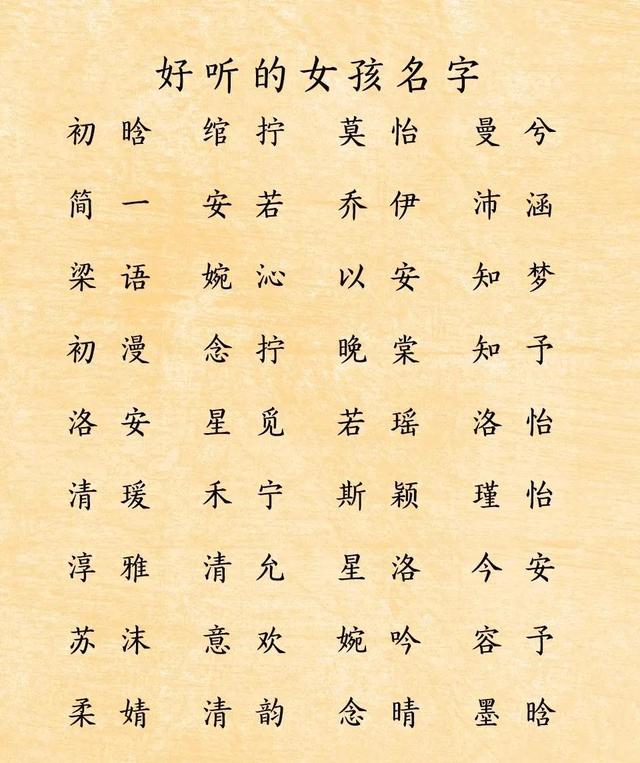 好听的女孩名字
初晗 绾拧 莫怡 曼兮
简一 安若 乔伊 沛涵
梁语 婉沁 以安 知梦
初漫 念拧 晚棠 知予
洛安 星觅 若瑶 洛怡
清瑗 禾宁 斯颖 瑾怡
淳雅 清允 星洛 今安
苏沫 意欢 婉吟 容予
柔婧 清韵 念晴 墨晗